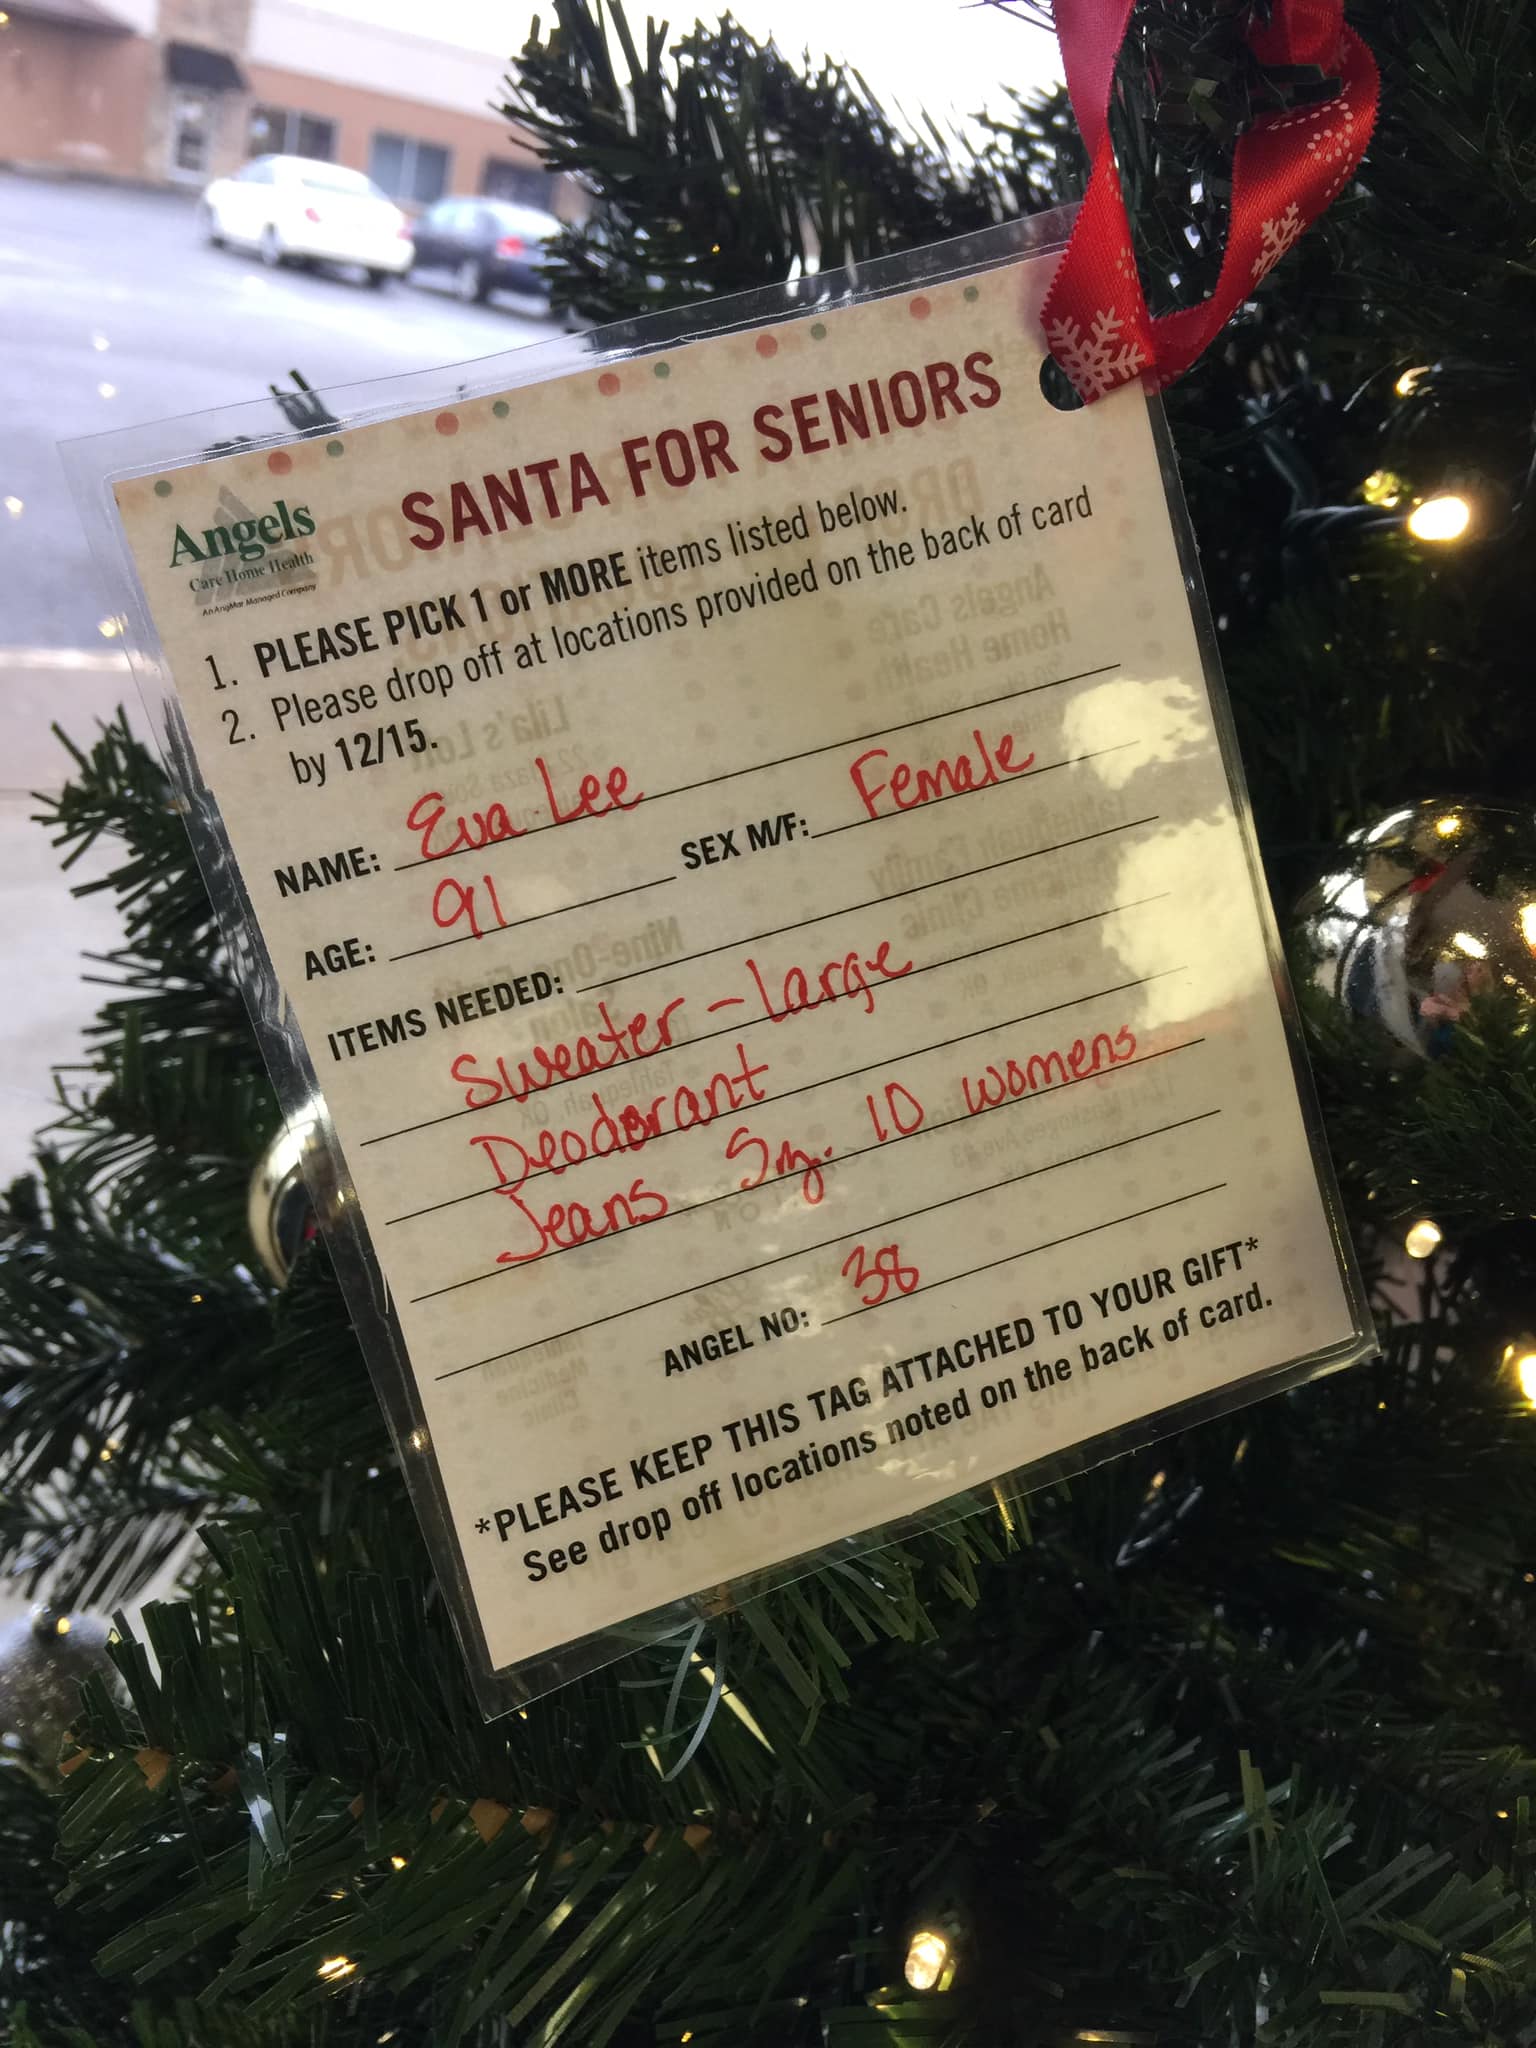 SANTA FOR SENIORS
Angels
Care Home Health
An AngMar Managed Company
1. PLEASE PICK 1 or MORE items listed below.
2. Please drop off at locations provided on the back of card
by 12/15.
NAME: Eva Lee
AGE: 91 SEX M/F: Female
ITEMS NEEDED:
Sweater - large
Deodorant
Jeans Sz. 10 womens
ANGEL NO: 38
*PLEASE KEEP THIS TAG ATTACHED TO YOUR GIFT*
See drop off locations noted on the back of card.